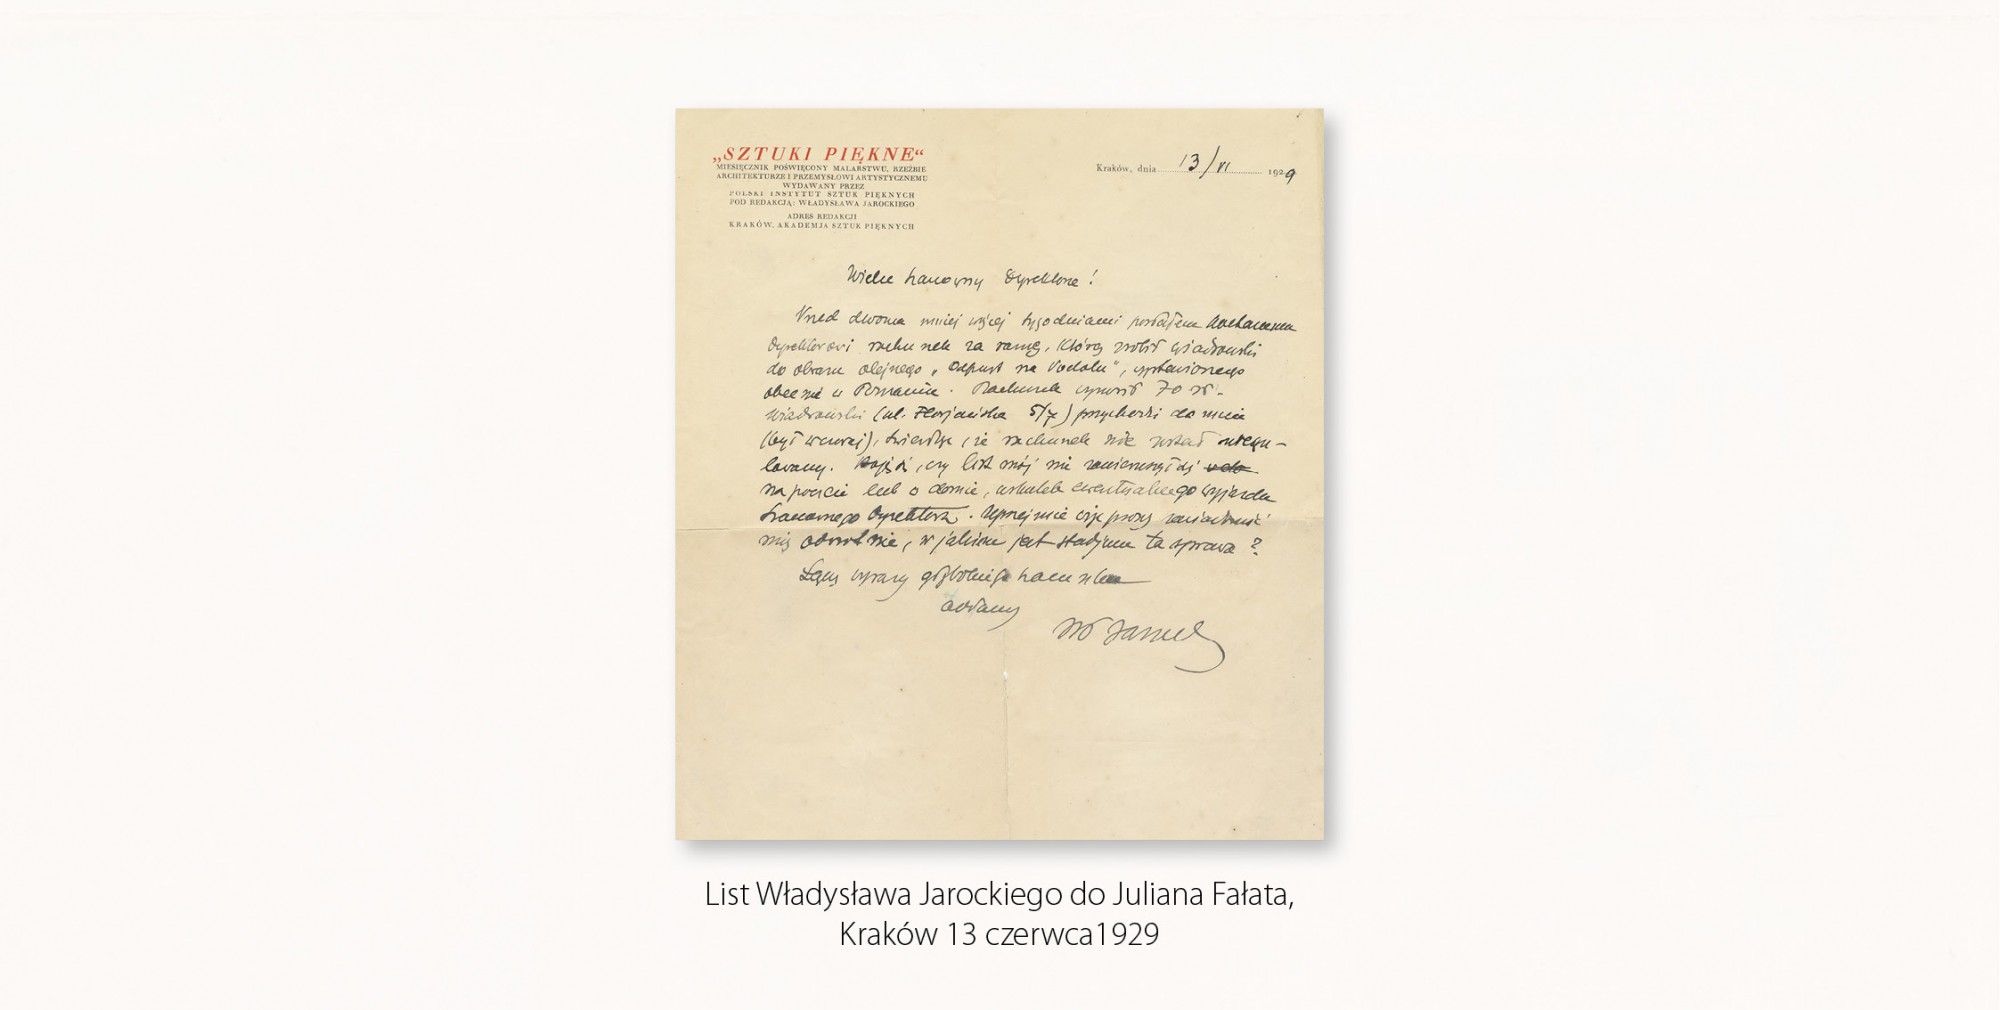 „SZTUKI PIĘKNE“
MIESIĘCZNIK POŚWIĘCONY MALARSTWU, RZEŹBIE
ARCHITEKTURZE I PRZEMYSŁOWI ARTYSTYCZNEMU
WYDAWANY PRZEZ
POLSKI INSTYTUT SZTUK PIĘKNYCH
POD REDAKCJĄ: WŁADYSŁAWA JAROCKIEGO
ADRES REDAKCJI
KRAKÓW, AKADEMJA SZTUK PIĘKNYCH
Kraków, dnia 13/VI 1929
Wielce Szanowny Dyrektorze!
Przed dwoma mniej więcej tygodniami posłałem
Dyrektorowi rachunek za ramę, którą zrobił Wiadrowski
do obrazu olejnego „Odpust na Podolu", wystawionego
obecnie w Poznaniu. Rachunek wynosił 70 zł.
Wiadrowski (ul. Florjańska 5/7) przychodzi do mnie
(był wczoraj), twierdząc, że rachunek nie został uregu-
lowany. czy list mój nie zawieruszył się
na poczcie lub w domu, wskutek ewentualnego wyjazdu
Szanownego Dyrektora. Uprzejmie więc proszę zawiadomić
mię odwrotnie, w jakiem jest stadjum ta sprawa?
Łączę wyrazy głębokiego szacunku
oddany
Wł Jarocki
List Władysława Jarockiego do Juliana Fałata,
Kraków 13 czerwca1929